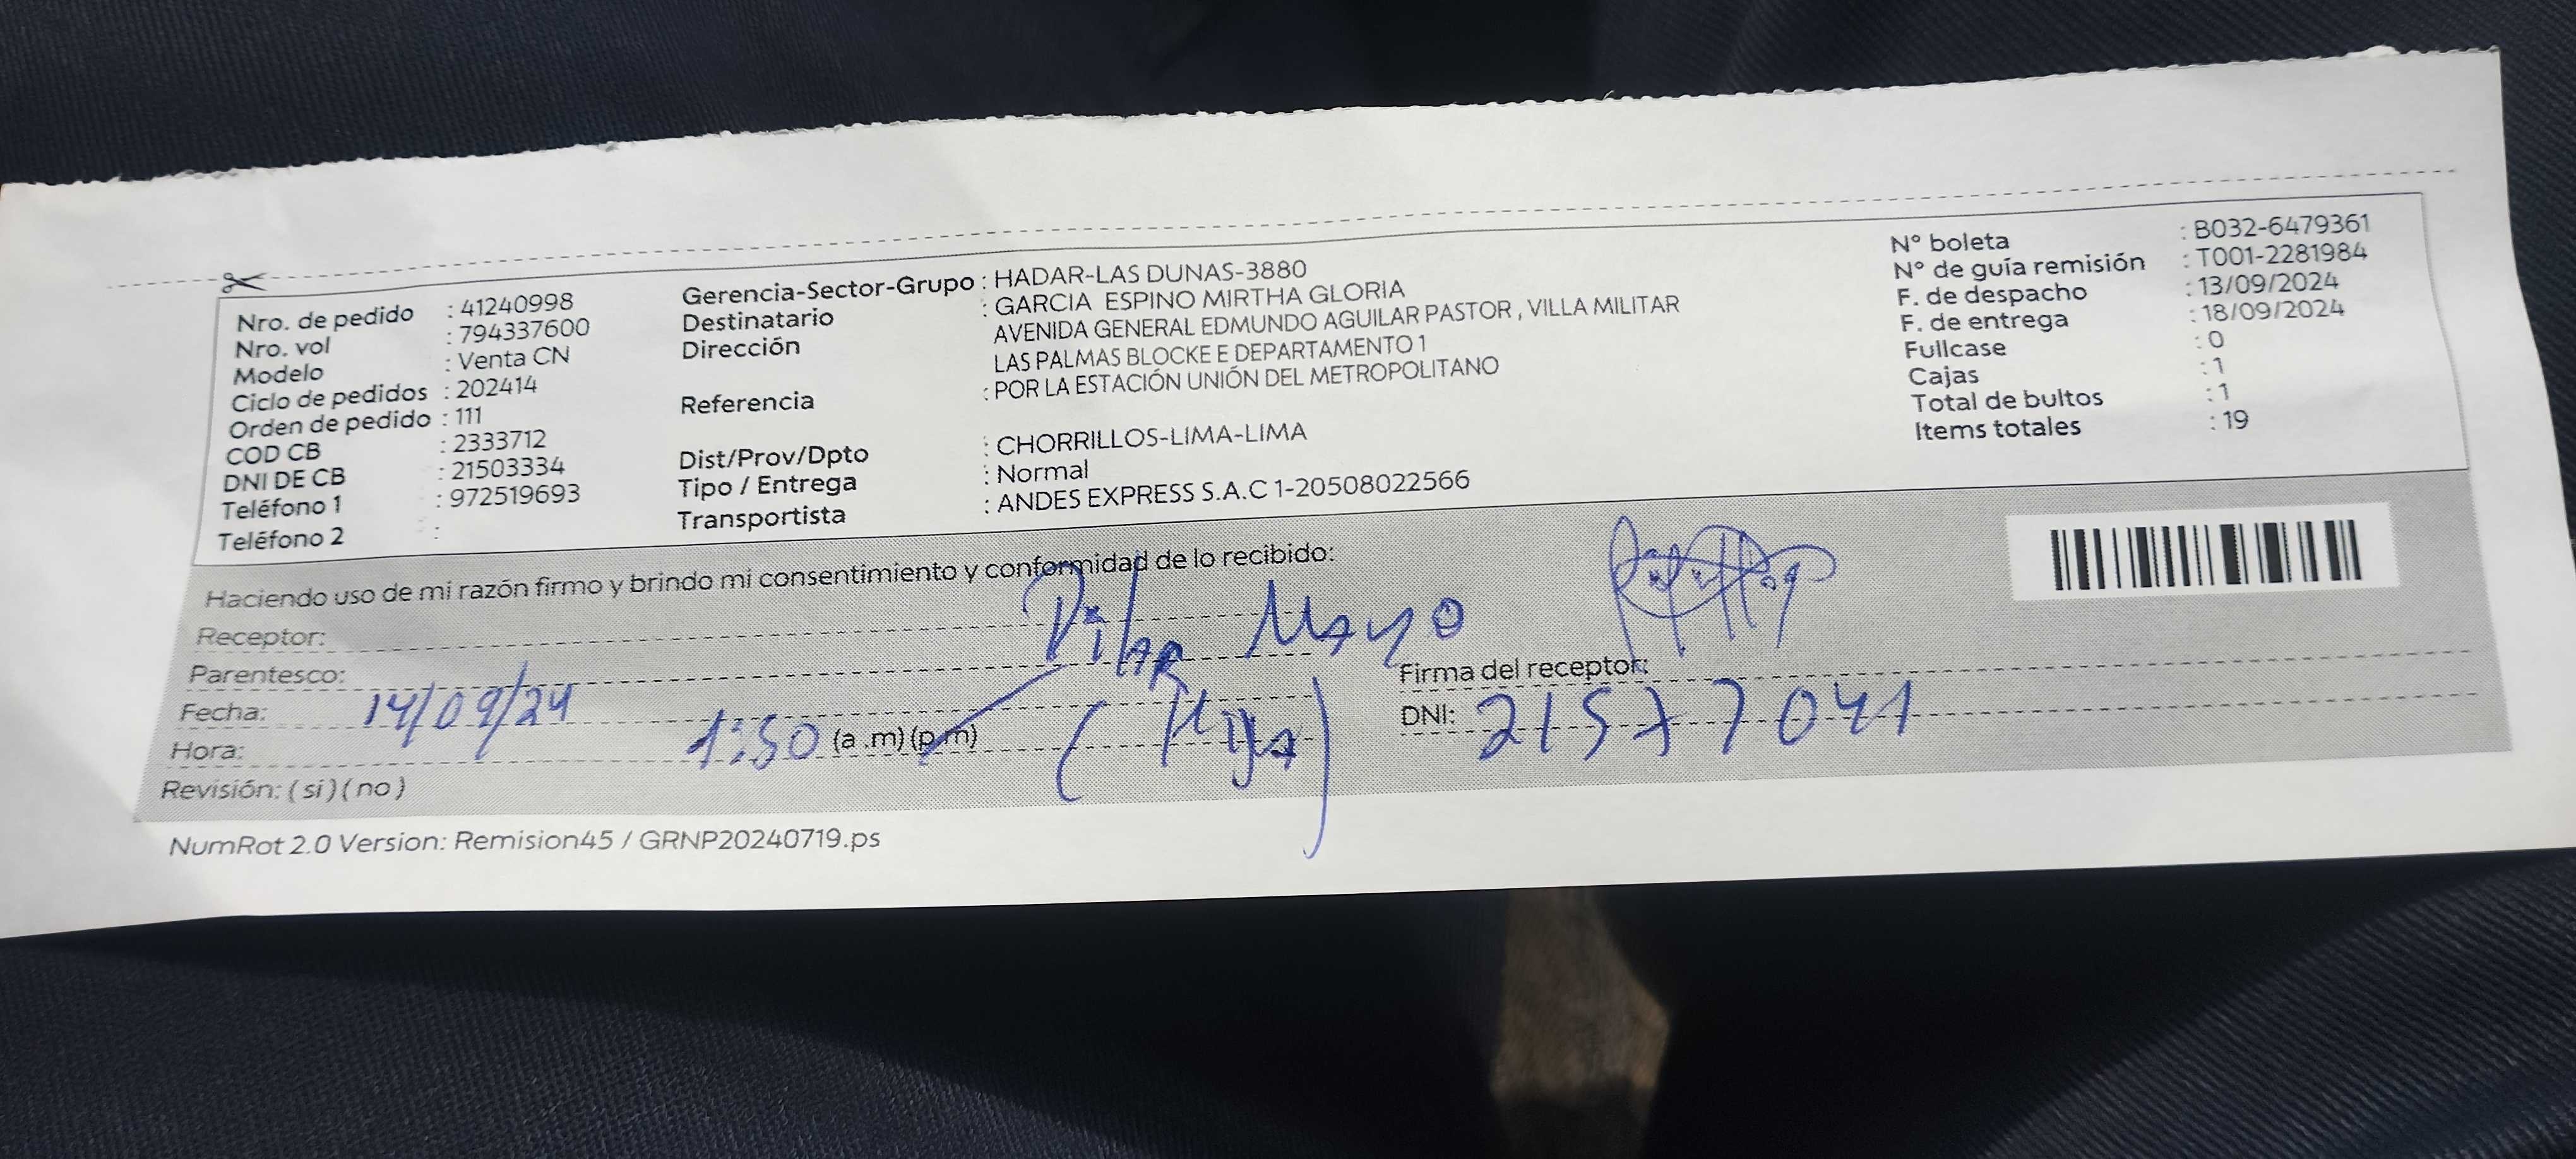 Nro. de pedido : 41240998
Nro. vol : 794337600
Modelo : Venta CN
Ciclo de pedidos : 202414
Orden de pedido : 111
COD CB : 2333712
DNI DE CB : 21503334
Teléfono 1 : 972519693
Teléfono 2 :
Gerencia-Sector-Grupo : HADAR-LAS DUNAS-3880
Destinatario : GARCIA ESPINO MIRTHA GLORIA
Dirección AVENIDA GENERAL EDMUNDO AGUILAR PASTOR , VILLA MILITAR
LAS PALMAS BLOCKE E DEPARTAMENTO 1
Referencia : POR LA ESTACIÓN UNIÓN DEL METROPOLITANO
Dist/Prov/Dpto : CHORRILLOS-LIMA-LIMA
Tipo / Entrega : Normal
Transportista : ANDES EXPRESS S.A.C 1-20508022566
N° boleta : B032-6479361
N° de guía remisión : T001-2281984
F. de despacho : 13/09/2024
F. de entrega : 18/09/2024
Fullcase : 0
Cajas : 1
Total de bultos : 1
Items totales : 19
Haciendo uso de mi razón firmo y brindo mi consentimiento y conformidad de lo recibido:
Receptor: Pilar Mayo
Parentesco: (Hija)
Fecha: 14/09/24
Hora: 1:50 (a .m) (p.m)
Revisión: ( si ) ( no )
Firma del receptor:
DNI: 21577041
NumRot 2.0 Version: Remision45 / GRNP20240719.ps